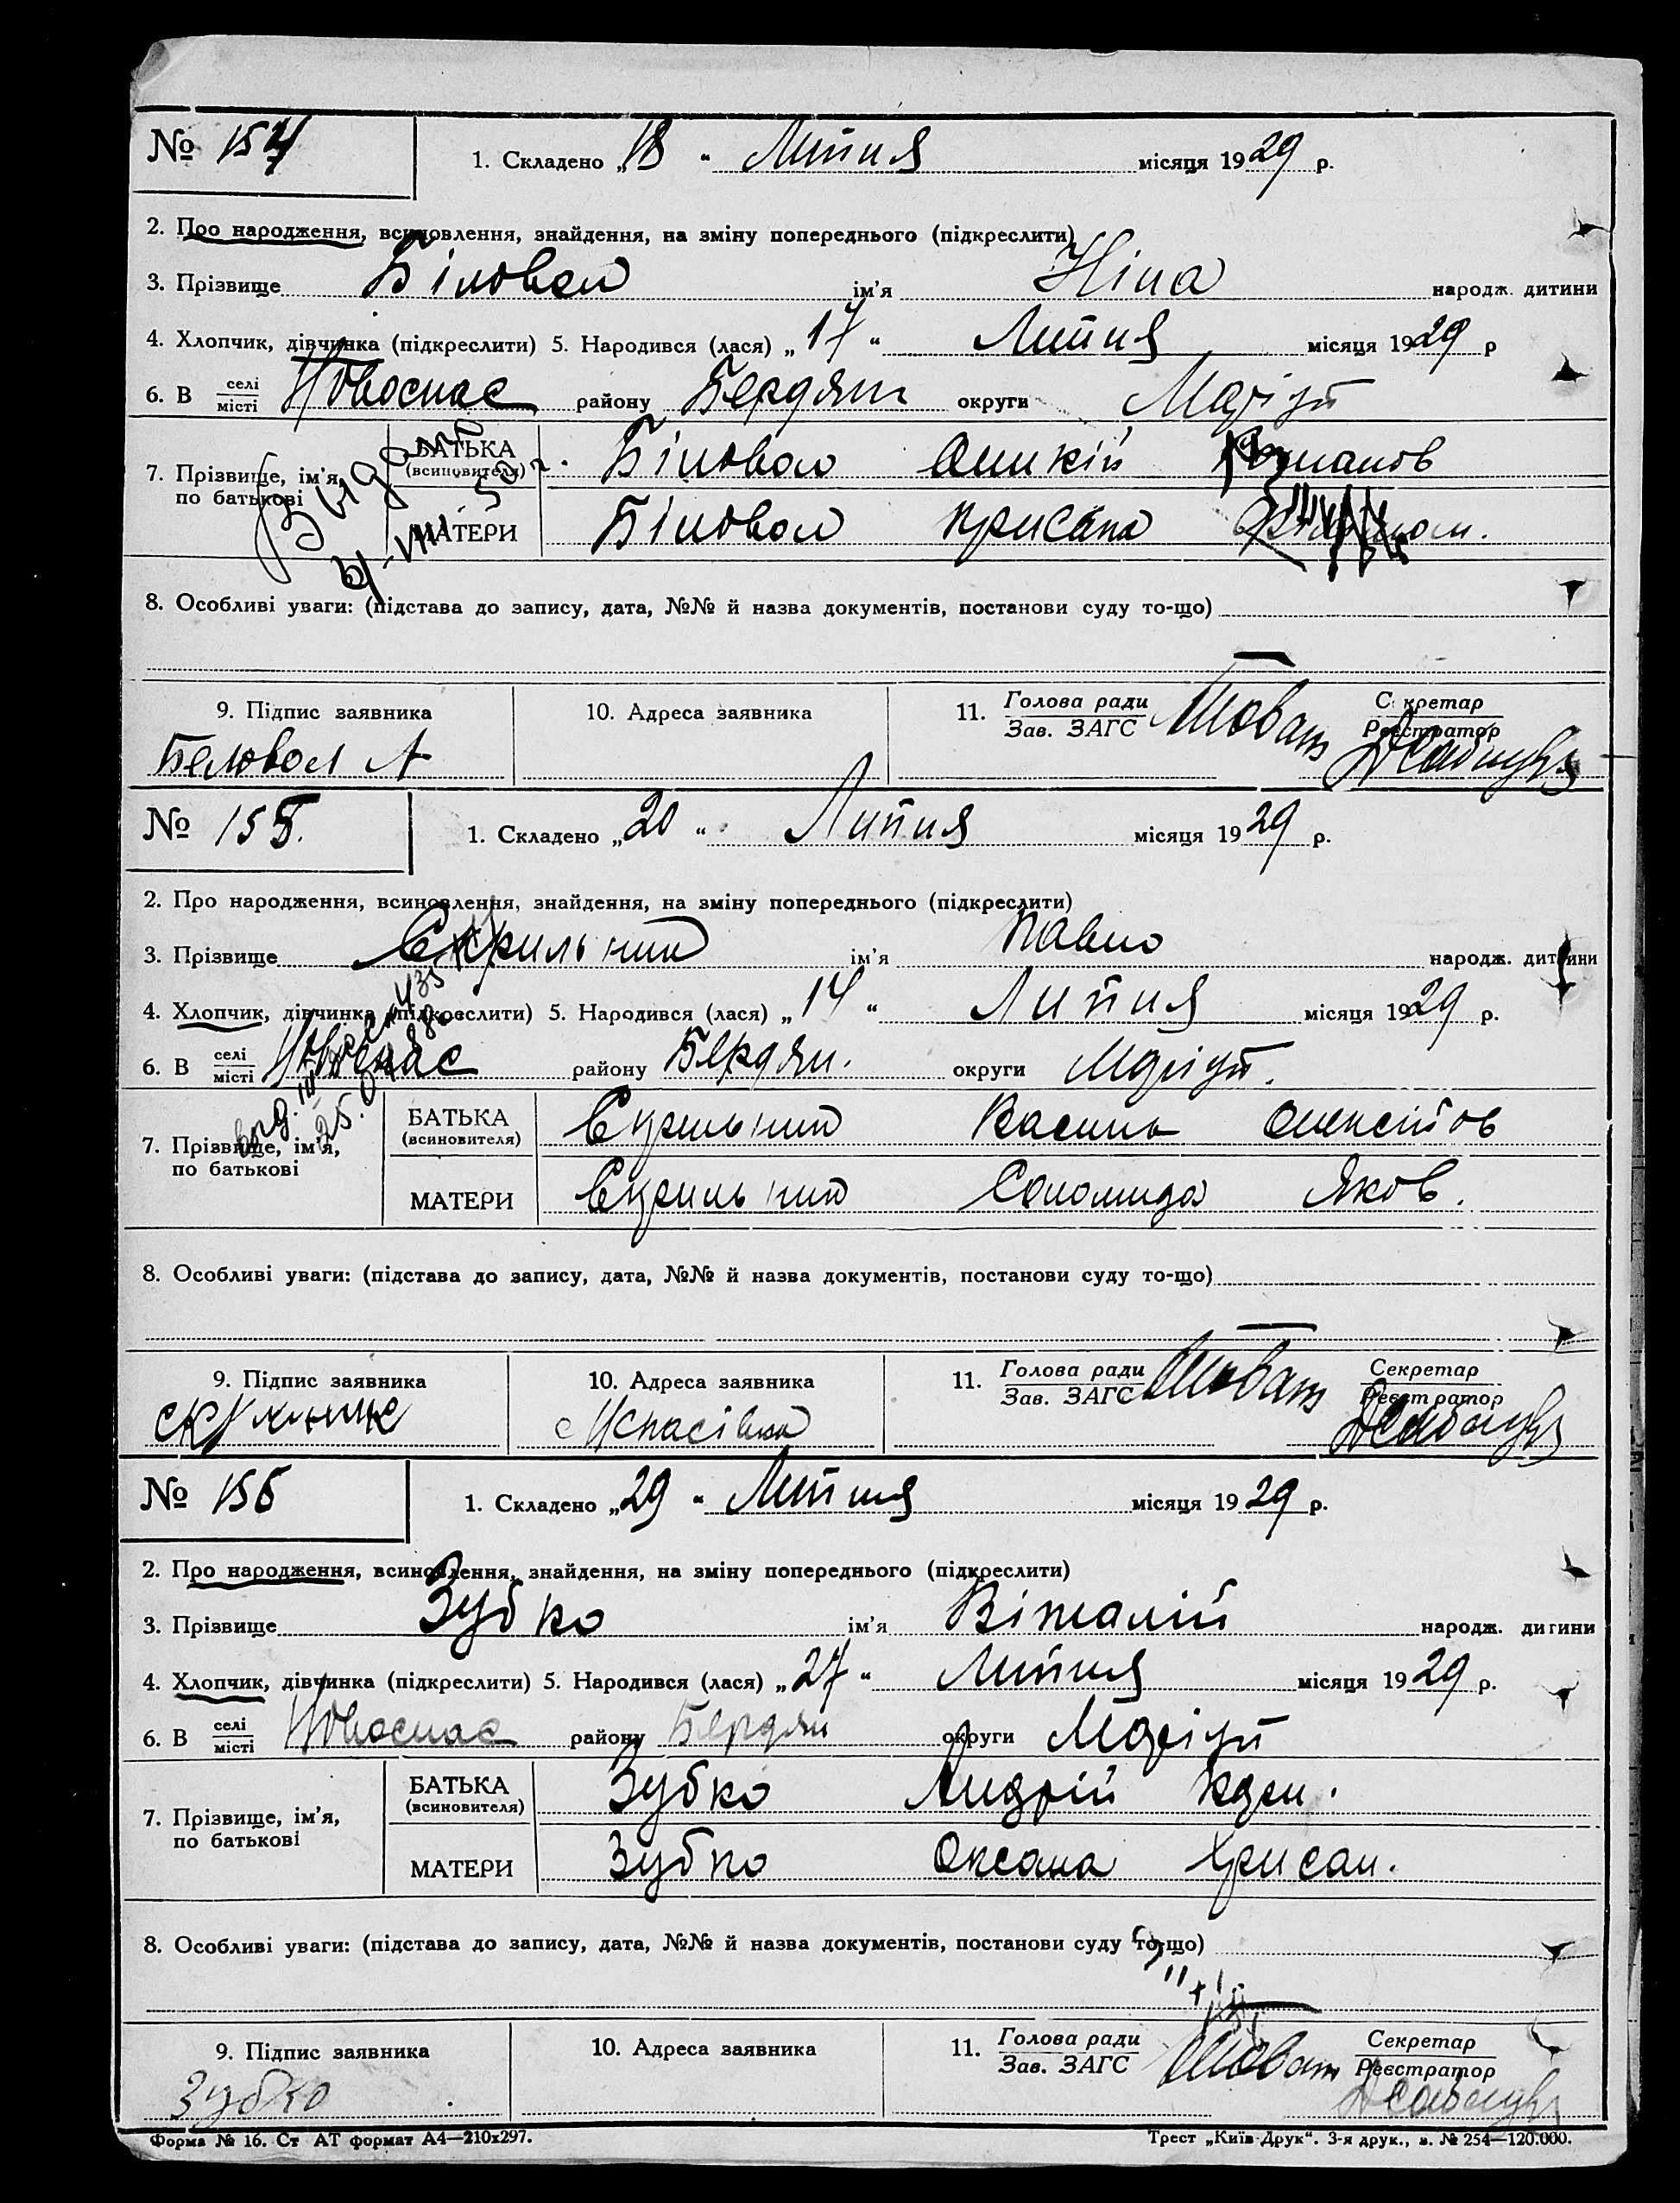 № 154 1. Складено „18“ Липня місяця 1929 р.
2. Про народження, всиновлення, знайдення, на зміну попереднього (підкреслити)
3. Прізвище Біловол ім'я Ніна народж. дитини
4. Хлопчик, дівчинка (підкреслити) 5. Народився (лася) „17“ Липня місяця 1929 р
6. В селі/місті Новоспас району Бердян округи Маріуп
7. Прізвище, ім'я, по батькові
БАТЬКА (всиновителя) Біловол
МАТЕРИ Біловол
8. Особливі уваги: (підстава до запису, дата, №№ й назва документів, постанови суду то-що)
9. Підпис заявника 10. Адреса заявника 11. Голова ради Секретар
Зав. ЗАГС Реєстратор
Беловол А
№ 155. 1. Складено „20“ Липня місяця 1929 р.
2. Про народження, всиновлення, знайдення, на зміну попереднього (підкреслити)
3. Прізвище ім'я Павло народж. дитини
4. Хлопчик, дівчинка (підкреслити) 5. Народився (лася) „14“ Липня місяця 1929 р.
6. В селі/місті Новоспас району Бердян. округи Маріуп.
7. Прізвище, ім'я, по батькові
БАТЬКА (всиновителя) Василь Олексійов
МАТЕРИ Соломида Яков.
8. Особливі уваги: (підстава до запису, дата, №№ й назва документів, постанови суду то-що)
9. Підпис заявника 10. Адреса заявника 11. Голова ради Секретар
Зав. ЗАГС Реєстратор
№ 156 1. Складено „29“ Липня місяця 1929 р.
2. Про народження, всиновлення, знайдення, на зміну попереднього (підкреслити)
3. Прізвище Зубко ім'я Віталій народж. дитини
4. Хлопчик, дівчинка (підкреслити) 5. Народився (лася) „27“ Липня місяця 1929 р.
6. В селі/місті Новоспас району Бердян округи Маріуп
7. Прізвище, ім'я, по батькові
БАТЬКА (всиновителя) Зубко Андрій
МАТЕРИ Зубко Оксана Хрисан.
8. Особливі уваги: (підстава до запису, дата, №№ й назва документів, постанови суду то-що)
9. Підпис заявника 10. Адреса заявника 11. Голова ради Секретар
Зав. ЗАГС Реєстратор
Зубко
Форма № 16. Ст АТ формат А4—210x297. Трест „Київ-Друк“. 3-я друк., з. № 254—120.000.